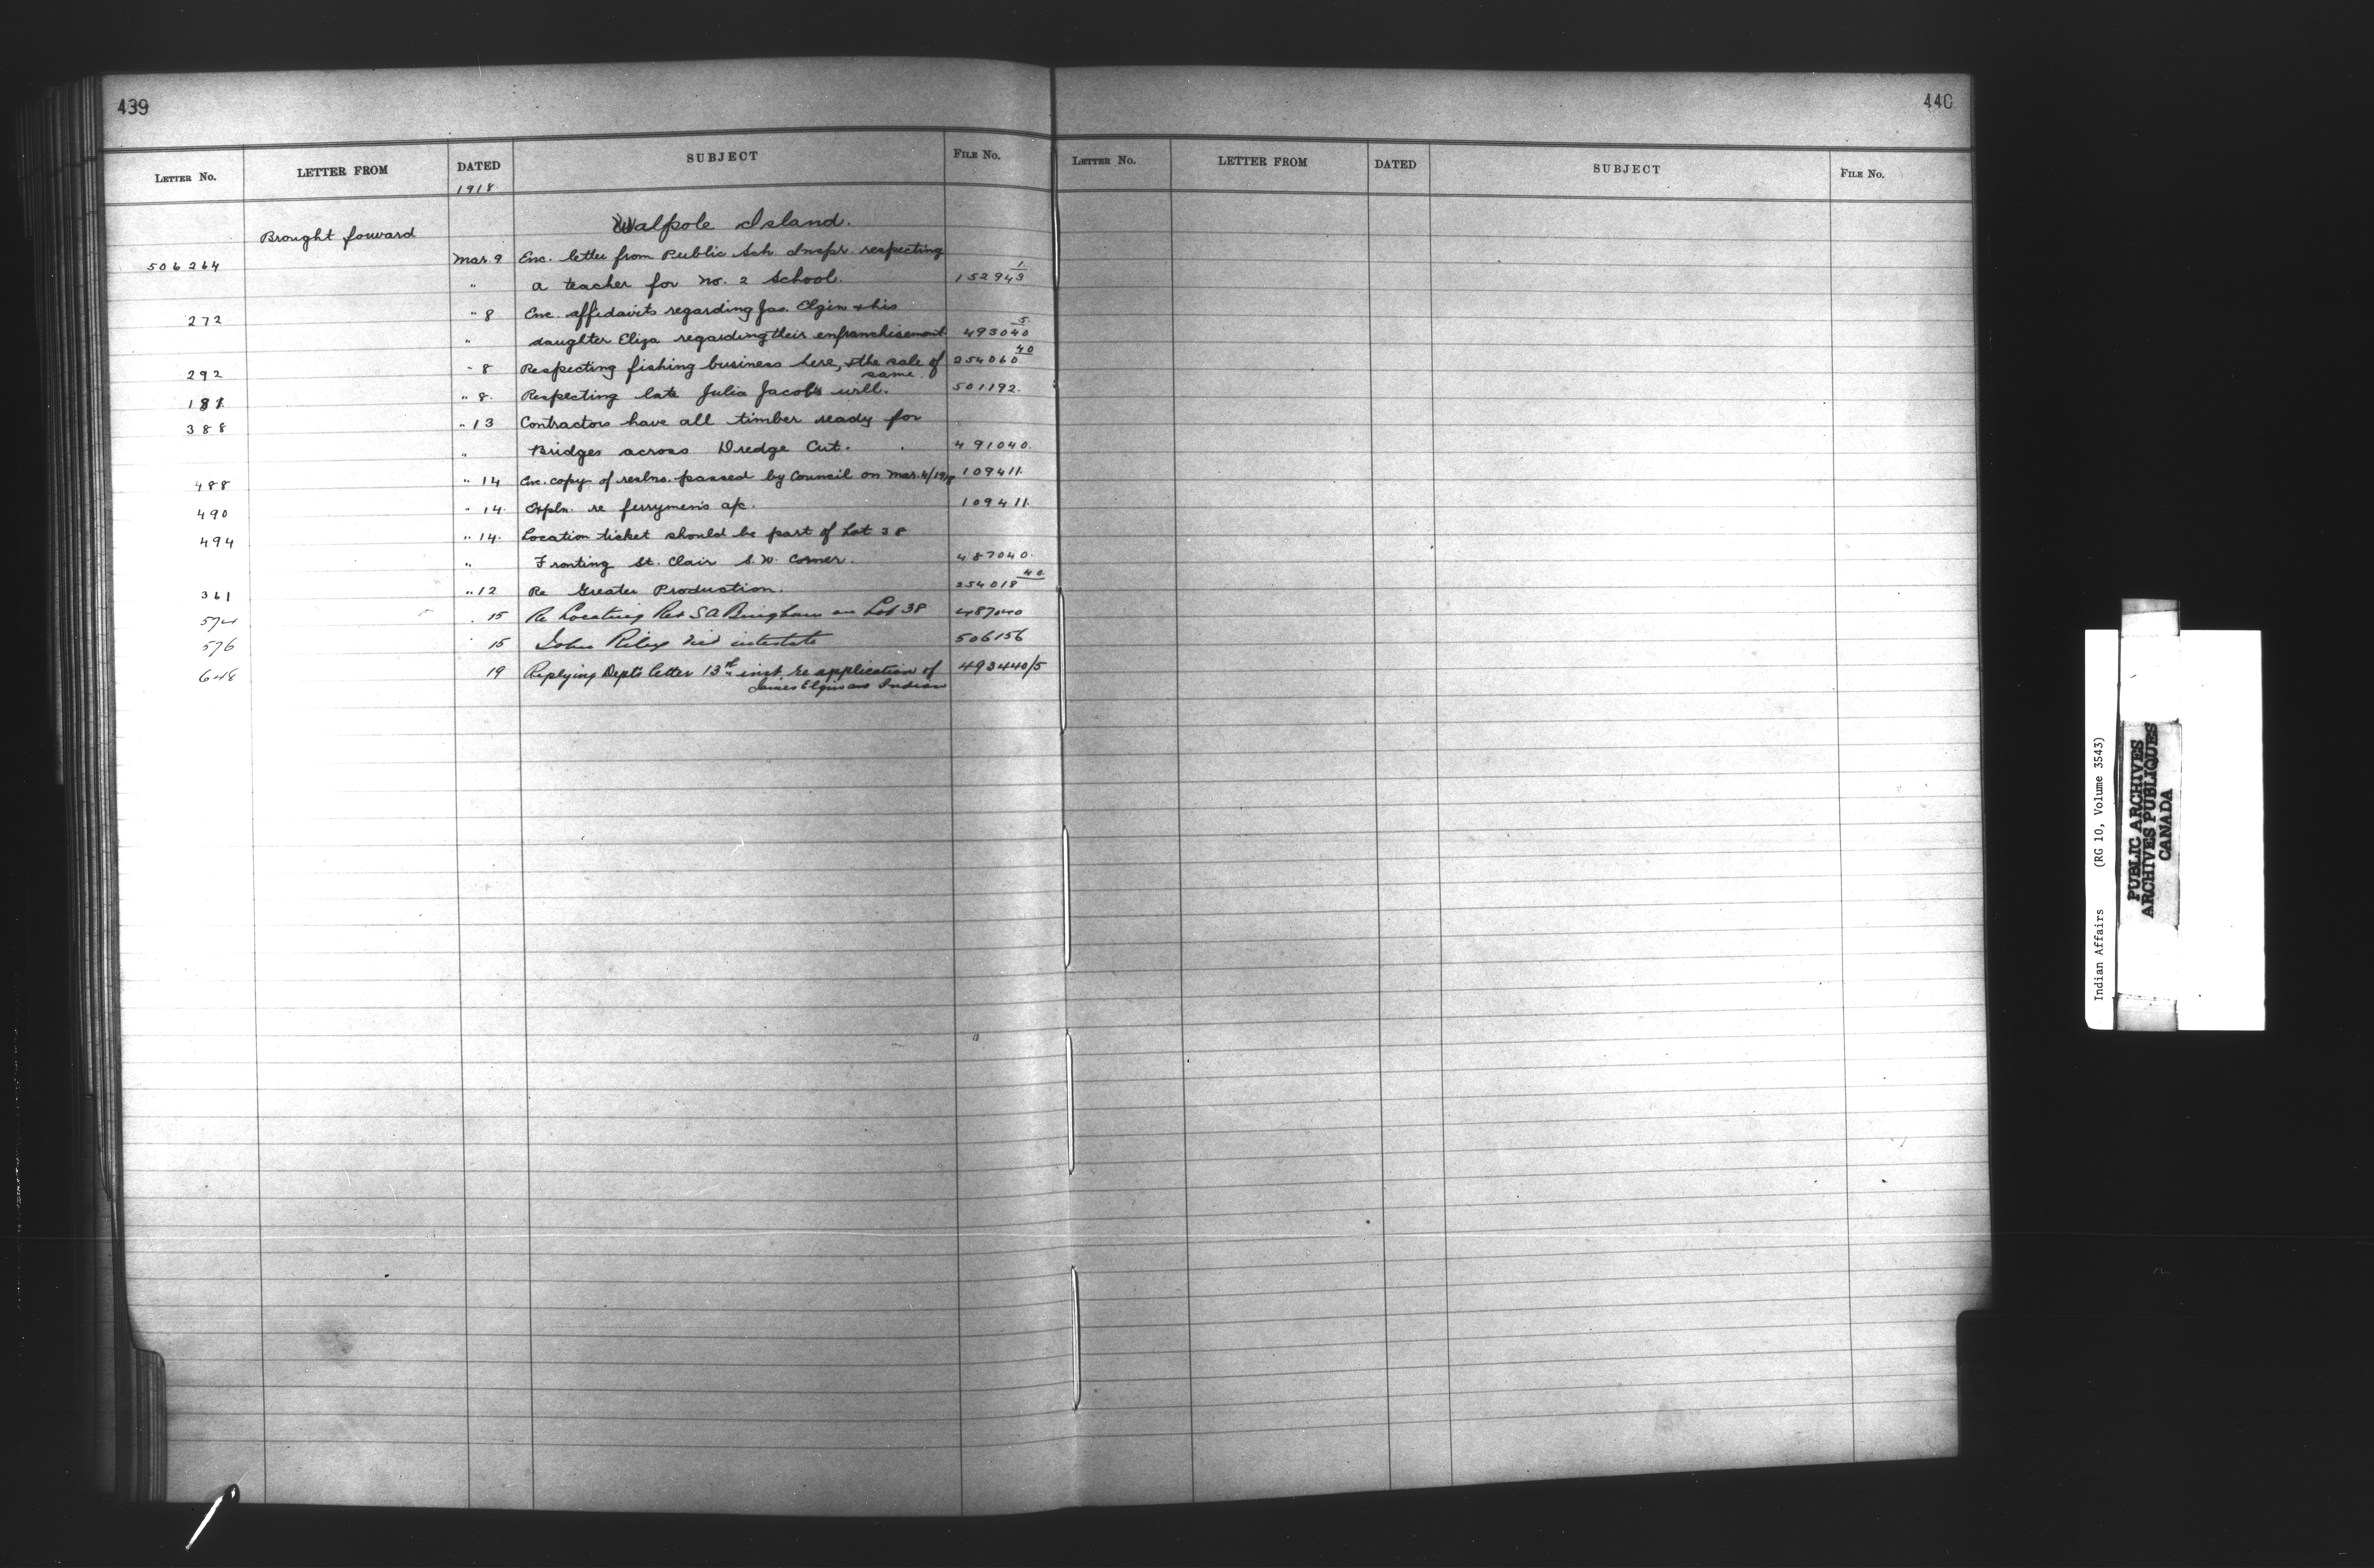 439
LETTER No. LETTER FROM DATED SUBJECT FILE No.
1918
Brought forward Walpole Island.
506264 Mar. 9 Enc. letter from Public Sch. Inspr. respecting
" a teacher for No. 2 School. 152943 1
272 " 8 Enc. affidavits regarding Jas. Elgin & his
" daughter Eliza regarding their enfranchisement 493040 5
292 " 8 Respecting fishing business here, & the sale of same. 254060 40
181 " 8. Respecting late Julia Jacobs will. 501192.
388 " 13 Contractors have all timber ready for
" Bridges across Dredge Cut. 491040.
488 " 14 Enc. copy of reslns. passed by Council on Mar. 4/1918 109411.
490 " 14. Expln. re ferrymen's a/c. 109411.
494 " 14. Location ticket should be part of Lot 38
" Fronting St. Clair S.W. Corner. 487040.
361 " 12 Re Greater Production. 254018 40
574 . 15 Re Locating Rev S A Bingham on Lot 38 487040
576 " 15 John Riley died intestate 506156
648 19 Replying Dept's letter 13th inst. re application of 493440/5
James Elgin Indian
440
LETTER No. LETTER FROM DATED SUBJECT FILE No.
Indian Affairs (RG 10, Volume 3543)
PUBLIC ARCHIVES
ARCHIVES PUBLIQUES
CANADA